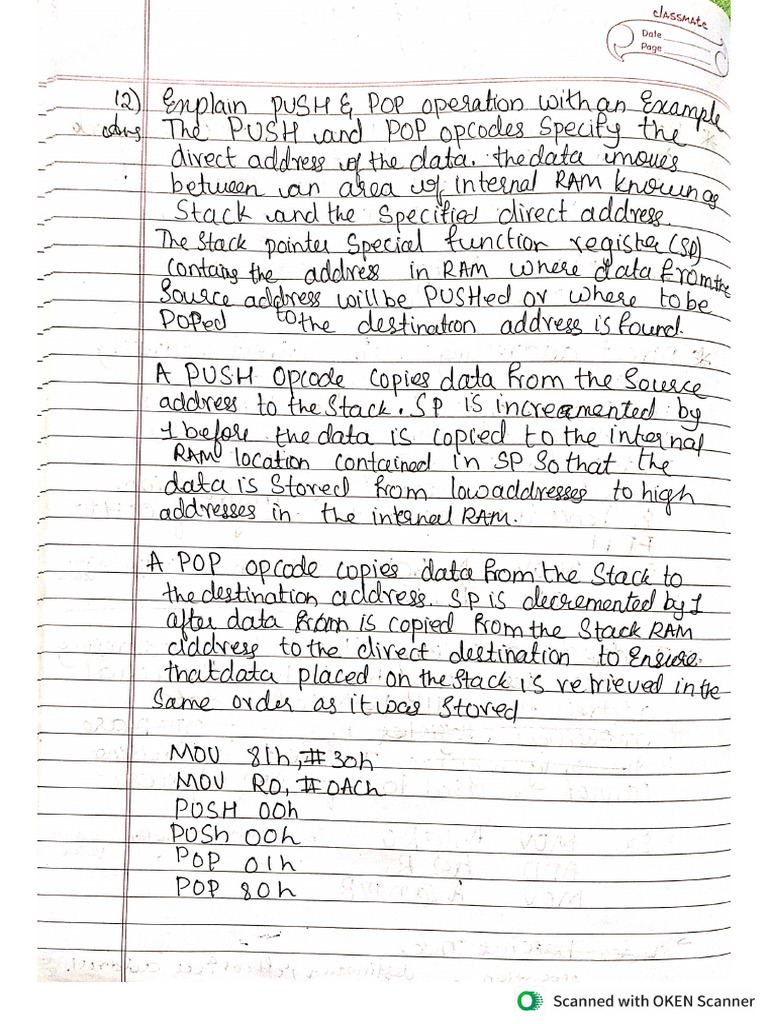 classmate
Date
Page
12) Explain PUSH & POP operation with an Example
Ans The PUSH and POP opcodes Specify the
direct address of the data. the data moves
between an area of internal RAM known as
Stack and the Specified direct address.
The Stack pointer Special function register (SP)
contains the address in RAM where data from the
Source address will be PUSHed or where to be
POPed to the destination address is found.
A PUSH Opcode copies data from the Source
address to the Stack. SP is increamented by
1 before the data is copied to the internal
RAM location contained in SP So that the
data is Stored from low addresses to high
addresses in the internal RAM.
A POP opcode copies data from the Stack to
the destination address. SP is decremented by 1
after data from is copied from the Stack RAM
address to the direct destination to Ensure
that data placed on the Stack is retrieved in the
Same order as it was Stored
MOV 81h, #30h
MOV R0, #0ACh
PUSH 00h
PUSh 00h
POP 01h
POP 80h
Scanned with OKEN Scanner